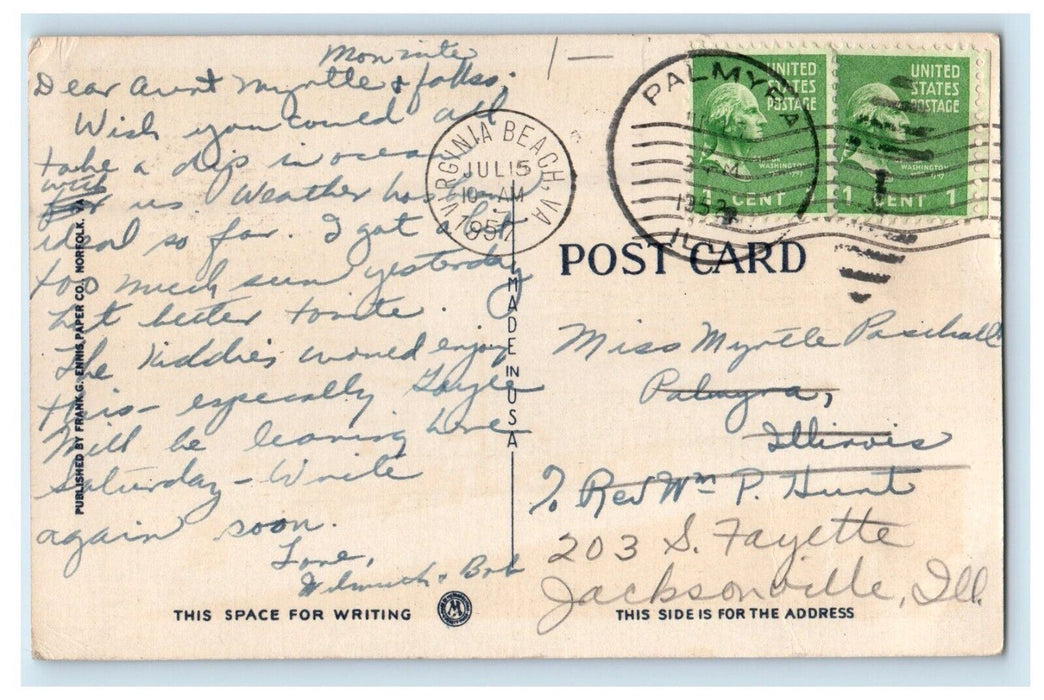 Mon nite
Dear Aunt Myrtle & folks;
Wish you could all
take a dip in ocean
with
us Weather has been
ideal so far. I got a bit
too much sun yesterday
but better tonite.
The Kiddies would enjoy
this - especially Gayle
Will be leaving here
Saturday - Write
again soon.
Love,
& Bob
THIS SPACE FOR WRITING
PUBLISHED BY FRANK G. ENNIS PAPER CO., NORFOLK, VA.
MADE IN USA
VIRGINIA BEACH, VA
JUL 15
10 AM
195
PALMYRA
ILL
UNITED
STATES
POSTAGE
WASHINGTON
1 CENT
UNITED
STATES
POSTAGE
WASHINGTON
1 CENT 1
POST CARD
Miss Myrtle Paschall
Palmyra,
Illinois
% Rev Wm P. Hunt
203 S. Fayette
Jacksonville, Ill.
THIS SIDE IS FOR THE ADDRESS